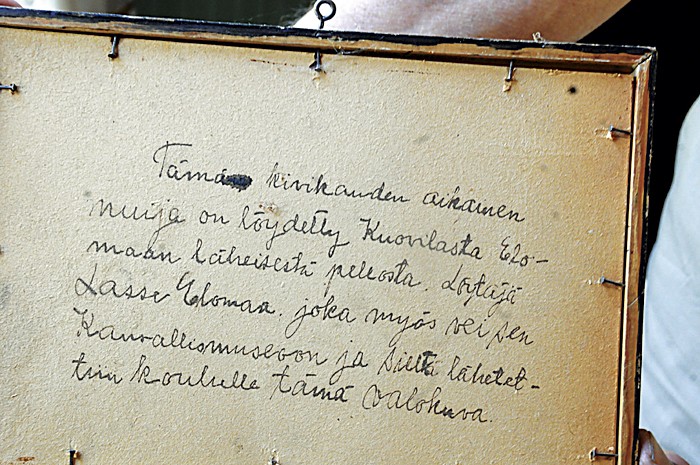 Tämä kivikauden aikainen
nuija on löydetty Kuovilasta Elo-
maan läheisestä pellosta. Löytäjä
Lasse Elomaa. joka myös vei sen
Kansallismuseoon ja sieltä lähetet-
tiin koululle tämä valokuva.